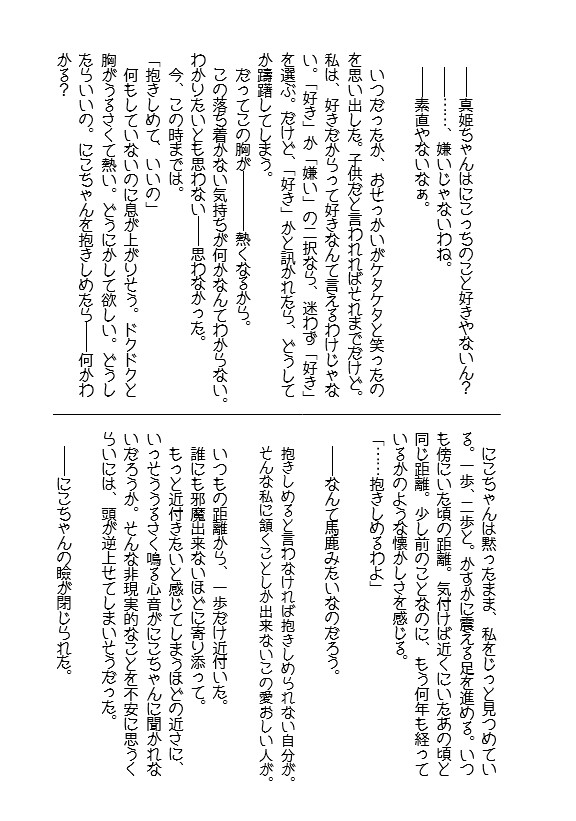 ――真姫ちゃんはにこっちのこと好きやないん？
――……、嫌いじゃないわね。
――素直やないなぁ。
いつだったか、おせっかいがケタケタと笑ったの
を思い出した。子供だと言われればそれまでだけど。
私は、好きだからって好きなんて言えるわけじゃな
い。「好き」か「嫌い」の二択なら、迷わず「好き」
を選ぶ。だけど、「好き」かと訊かれたら、どうして
か躊躇してしまう。
だってこの胸が――――熱くなるから。
この落ち着かない気持ちが何かなんてわからない。
わかりたいとも思わない――思わなかった。
今、この時までは。
「抱きしめて、いいの」
何もしていないのに息が上がりそう。ドクドクと
胸がうるさくて熱い。どうにかして欲しい。どうし
たらいいの。にこちゃんを抱きしめたら――何かわ
かる？
にこちゃんは黙ったまま、私をじっと見つめてい
る。一歩、二歩と。かすかに震える足を進める。いつ
も傍にいた頃の距離。気付けば近くにいたあの頃と
同じ距離。少し前のことなのに、もう何年も経って
いるかのような懐かしさを感じる。
「……抱きしめるわよ」
――なんて馬鹿みたいなのだろう。
抱きしめると言わなければ抱きしめられない自分が。
そんな私に頷くことしか出来ないこの愛おしい人が。
いつもの距離から、一歩だけ近付いた。
誰にも邪魔出来ないほどに寄り添って。
もっと近付きたいと感じてしまうほどの近さに、
いっそううるさく鳴る心音がにこちゃんに聞かれな
いだろうか。そんな非現実的なことを不安に思うく
らいには、頭が逆上せてしまいそうだった。
――にこちゃんの瞼が閉じられた。